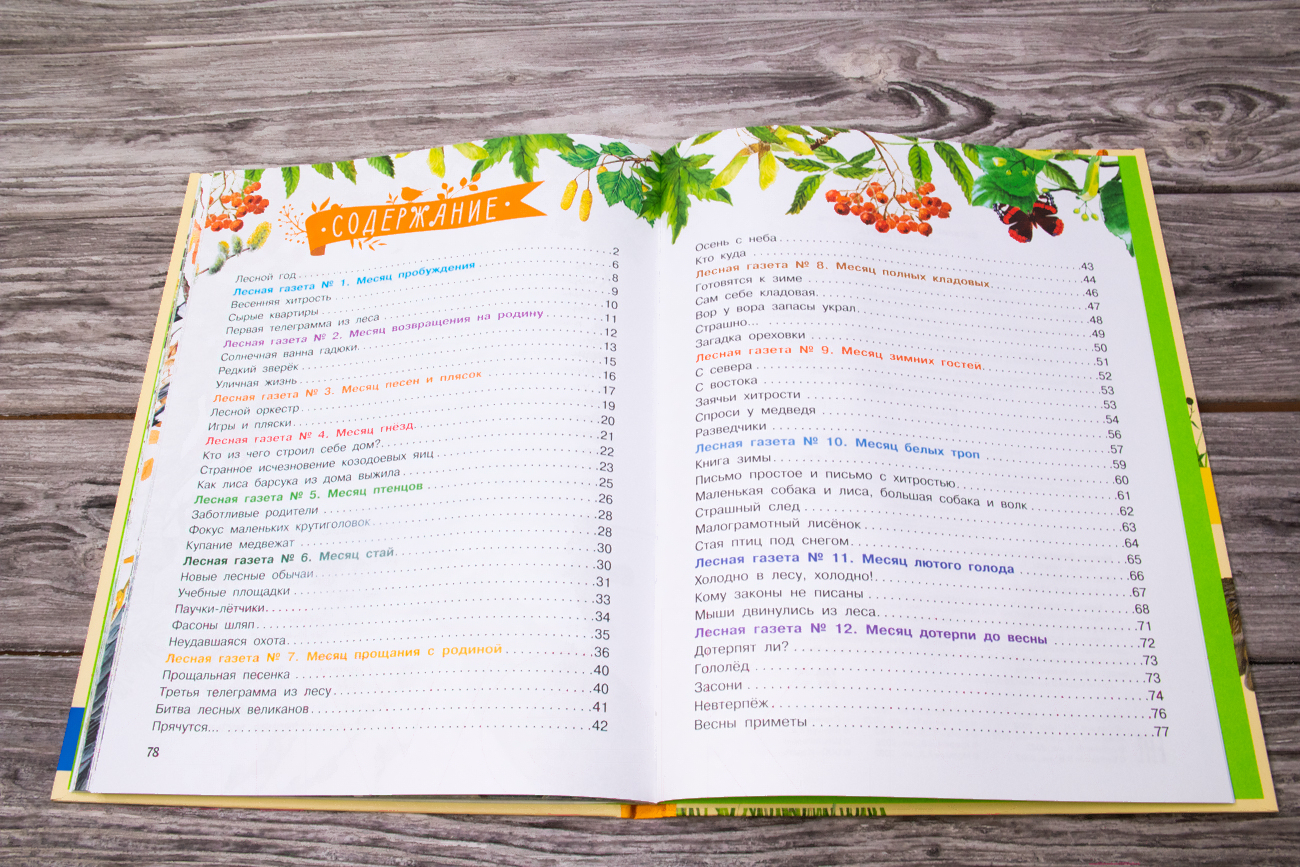 СОДЕРЖАНИЕ
Лесной год 2
Лесная газета № 1. Месяц пробуждения 6
Весенняя хитрость 8
Сырые квартиры 9
Первая телеграмма из леса 10
Лесная газета № 2. Месяц возвращения на родину 11
Солнечная ванна гадюки 12
Редкий зверёк 13
Уличная жизнь 15
Лесная газета № 3. Месяц песен и плясок 16
Лесной оркестр 17
Игры и пляски 19
Лесная газета № 4. Месяц гнёзд 20
Кто из чего строил себе дом? 21
Странное исчезновение козодоевых яиц 22
Как лиса барсука из дома выжила 23
Лесная газета № 5. Месяц птенцов 25
Заботливые родители 26
Фокус маленьких крутиголовок 28
Купание медвежат 28
Лесная газета № 6. Месяц стай 30
Новые лесные обычаи 30
Учебные площадки 31
Паучки-лётчики 33
Фасоны шляп 34
Неудавшаяся охота 35
Лесная газета № 7. Месяц прощания с родиной 36
Прощальная песенка 40
Третья телеграмма из лесу 40
Битва лесных великанов 41
Прячутся... 42
78
Осень с неба 43
Кто куда 44
Лесная газета № 8. Месяц полных кладовых 46
Готовятся к зиме 47
Сам себе кладовая 48
Вор у вора запасы украл 49
Страшно... 50
Загадка ореховки 51
Лесная газета № 9. Месяц зимних гостей 52
С севера 53
С востока 53
Заячьи хитрости 54
Спроси у медведя 56
Разведчики 57
Лесная газета № 10. Месяц белых троп 59
Книга зимы 60
Письмо простое и письмо с хитростью 61
Маленькая собака и лиса, большая собака и волк 62
Страшный след 63
Малограмотный лисёнок 64
Стая птиц под снегом 65
Лесная газета № 11. Месяц лютого голода 66
Холодно в лесу, холодно! 67
Кому законы не писаны 68
Мыши двинулись из леса 71
Лесная газета № 12. Месяц дотерпи до весны 72
Дотерпят ли? 73
Гололёд 73
Засони 74
Невтерпёж 76
Весны приметы 77